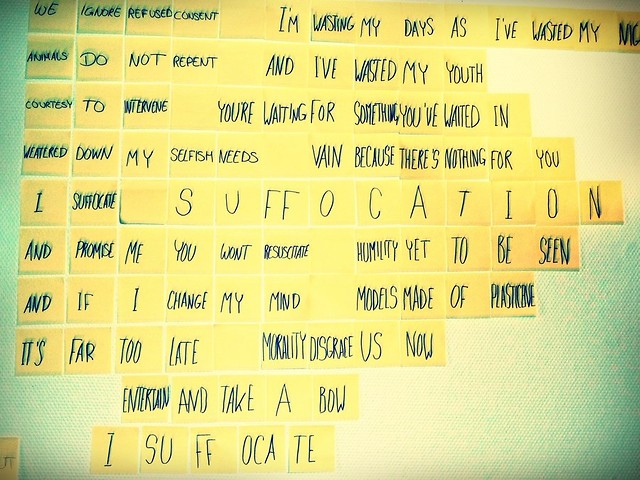 WE IGNORE REFUSED CONSENT I'M WASTING MY DAYS AS I'VE WASTED MY
ANIMALS DO NOT REPENT AND I'VE WASTED MY YOUTH
COURTESY TO INTERVENE YOU'RE WAITING FOR SOMETHING YOU'VE WAITED IN
WEATERED DOWN MY SELFISH NEEDS VAIN BECAUSE THERE'S NOTHING FOR YOU
I SUFFOCATE S U FF O C A T I O N
AND PROMISE ME YOU WONT RESUSCITATE HUMILITY YET TO BE SEEN
AND IF I CHANGE MY MIND MODELS MADE OF PLASTICINE
IT'S FAR TOO LATE MORALITY DISGRACE US NOW
ENTERTAIN AND TAKE A BOW
I SU FF OCA TE